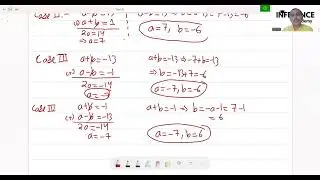 Case II :- a-b=13
a+b=1
2a=14
⇒a=7 a=7, b=-6
Case III a+b=-13 a+b=-13 ⇒ -7+b=-13
(+) a-b=-1 ⇒ b=-13+7=-6
2a=-14
a=-7 a=-7, b=-6
Case IV a+b=-1 a+b=-1 → b=-a-1=7-1
(+) a-b=-13 = 6
2a=-14
a=-7 a=-7, b=6